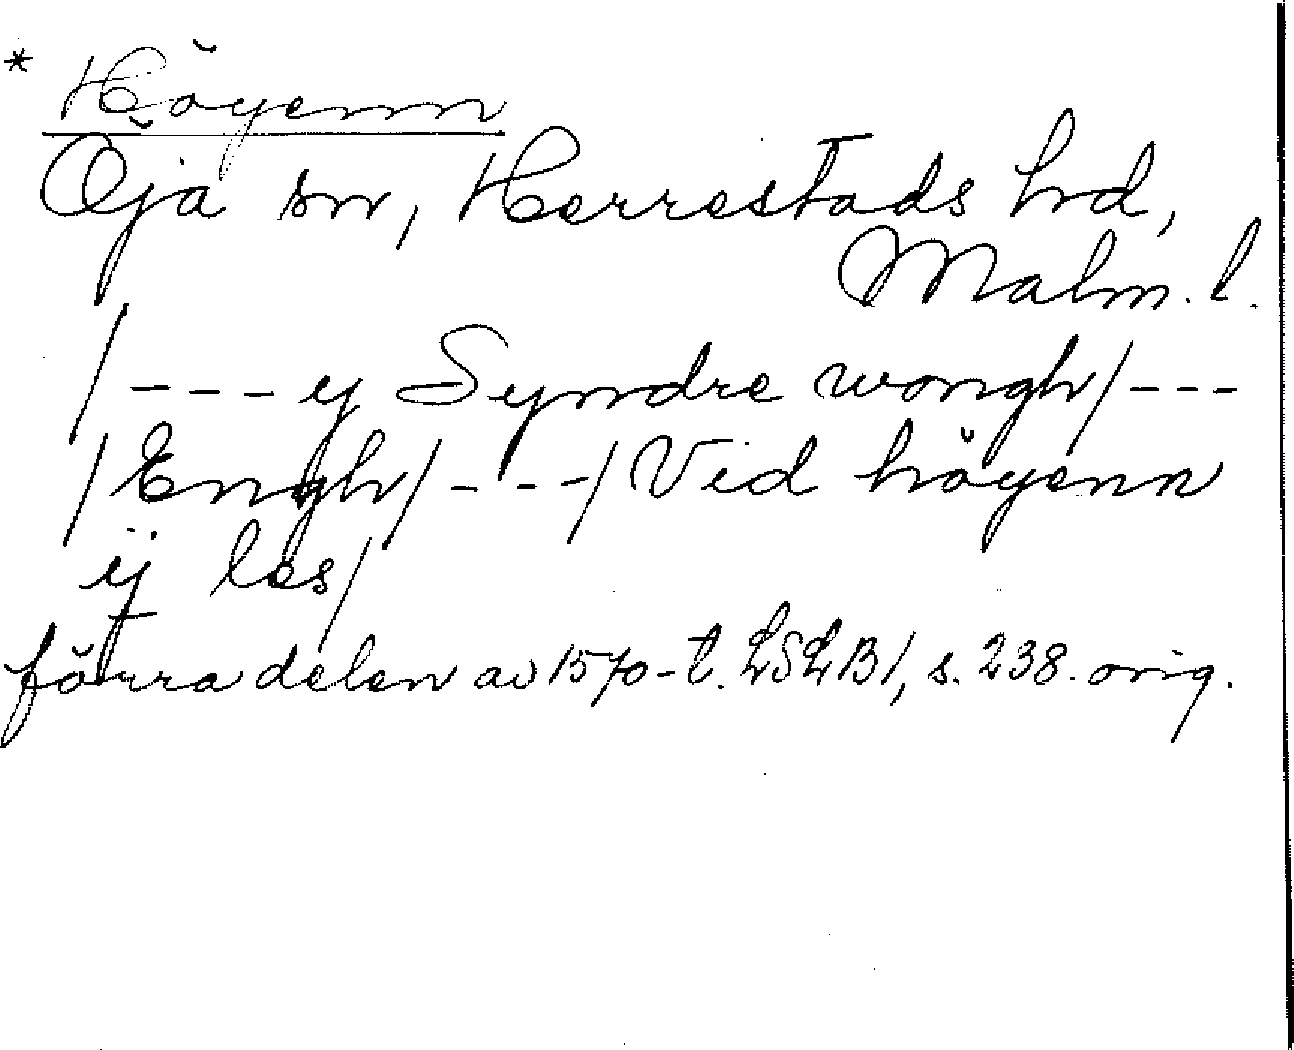 * Höyenn
Öja sn, Herrestads hd,
Malm. l.
/--- y Syndre wongh/---
/Engh/---/Vid höyenn
ij les/
förra delen av 1570-t. LSLB1, s. 238. orig.